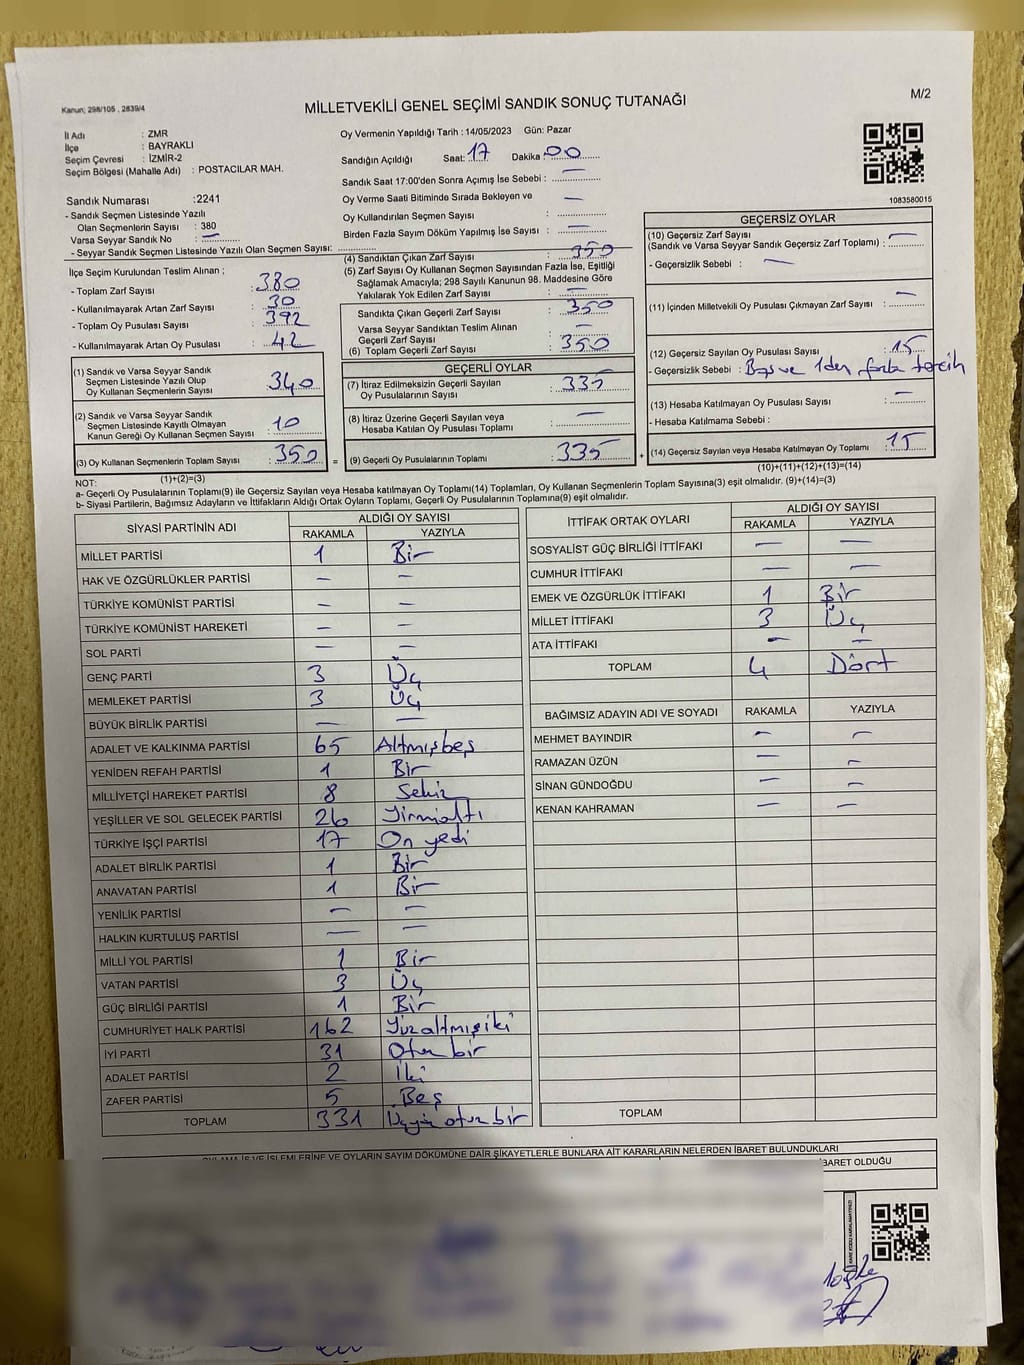 Kanun; 298/105 , 2839/4
MİLLETVEKİLİ GENEL SEÇİMİ SANDIK SONUÇ TUTANAĞI
M/2
İl Adı : ZMR
İlçe : BAYRAKLI
Seçim Çevresi : İZMİR-2
Seçim Bölgesi (Mahalle Adı) : POSTACILAR MAH.
Oy Vermenin Yapıldığı Tarih : 14/05/2023 Gün: Pazar
Sandığın Açıldığı Saat: 17 Dakika : 00
Sandık Saat 17:00'den Sonra Açımış İse Sebebi : —
Oy Verme Saati Bitiminde Sırada Bekleyen ve
Oy Kullandırılan Seçmen Sayısı : —
Birden Fazla Sayım Döküm Yapılmış İse Sayısı : —
1083580015
Sandık Numarası :2241
- Sandık Seçmen Listesinde Yazılı
Olan Seçmenlerin Sayısı : 380
Varsa Seyyar Sandık No : —
- Seyyar Sandık Seçmen Listesinde Yazılı Olan Seçmen Sayısı:
İlçe Seçim Kurulundan Teslim Alınan ;
- Toplam Zarf Sayısı : 380
- Kullanılmayarak Artan Zarf Sayısı : 30
- Toplam Oy Pusulası Sayısı : 392
- Kullanılmayarak Artan Oy Pusulası : 42
(1) Sandık ve Varsa Seyyar Sandık
Seçmen Listesinde Yazılı Olup
Oy Kullanan Seçmenlerin Sayısı : 340
(2) Sandık ve Varsa Seyyar Sandık
Seçmen Listesinde Kayıtlı Olmayan
Kanun Gereği Oy Kullanan Seçmen Sayısı : 10
(3) Oy Kullanan Seçmenlerin Toplam Sayısı : 350
(1)+(2)=(3)
(4) Sandıktan Çıkan Zarf Sayısı : 350
(5) Zarf Sayısı Oy Kullanan Seçmen Sayısından Fazla İse, Eşitliği
Sağlamak Amacıyla; 298 Sayılı Kanunun 98. Maddesine Göre
Yakılarak Yok Edilen Zarf Sayısı : —
Sandıkta Çıkan Geçerli Zarf Sayısı : 350
Varsa Seyyar Sandıktan Teslim Alınan
Geçerli Zarf Sayısı : —
(6) Toplam Geçerli Zarf Sayısı : 350
GEÇERLİ OYLAR
(7) İtiraz Edilmeksizin Geçerli Sayılan
Oy Pusulasının Sayısı : 335
(8) İtiraz Üzerine Geçerli Sayılan veya
Hesaba Katılan Oy Pusulası Toplamı : —
= (9) Geçerli Oy Pusulalarının Toplamı : 335 +
GEÇERSİZ OYLAR
(10) Geçersiz Zarf Sayısı
(Sandık ve Varsa Seyyar Sandık Geçersiz Zarf Toplamı) : —
- Geçersizlik Sebebi : —
(11) İçinden Milletvekili Oy Pusulası Çıkmayan Zarf Sayısı : —
(12) Geçersiz Sayılan Oy Pusulası Sayısı : 15
- Geçersizlik Sebebi : Boş ve 1den fazla tercih
(13) Hesaba Katılmayan Oy Pusulası Sayısı : —
- Hesaba Katılmama Sebebi :
(14) Geçersiz Sayılan veya Hesaba Katılmayan Oy Toplamı : 15
(10)+(11)+(12)+(13)=(14)
NOT:
a- Geçerli Oy Pusulalarının Toplamı(9) ile Geçersiz Sayılan veya Hesaba katılmayan Oy Toplamı(14) Toplamları, Oy Kullanan Seçmenlerin Toplam Sayısına(3) eşit olmalıdır. (9)+(14)=(3)
b- Siyasi Partilerin, Bağımsız Adayların ve İttifakların Aldığı Ortak Oyların Toplamı, Geçerli Oy Pusulalarının Toplamına(9) eşit olmalıdır.
SİYASİ PARTİNİN ADI ALDIĞI OY SAYISI
RAKAMLA YAZIYLA
MİLLET PARTİSİ 1 Bir
HAK VE ÖZGÜRLÜKLER PARTİSİ — —
TÜRKİYE KOMÜNİST PARTİSİ — —
TÜRKİYE KOMÜNİST HAREKETİ — —
SOL PARTİ — —
GENÇ PARTİ 3 Üç
MEMLEKET PARTİSİ 3 Üç
BÜYÜK BİRLİK PARTİSİ — —
ADALET VE KALKINMA PARTİSİ 65 Altmışbeş
YENİDEN REFAH PARTİSİ 1 Bir
MİLLİYETÇİ HAREKET PARTİSİ 8 Sekiz
YEŞİLLER VE SOL GELECEK PARTİSİ 26 Yirmialtı
TÜRKİYE İŞÇİ PARTİSİ 17 On yedi
ADALET BİRLİK PARTİSİ 1 Bir
ANAVATAN PARTİSİ 1 Bir
YENİLİK PARTİSİ — —
HALKIN KURTULUŞ PARTİSİ — —
MİLLİ YOL PARTİSİ 1 Bir
VATAN PARTİSİ 3 Üç
GÜÇ BİRLİĞİ PARTİSİ 1 Bir
CUMHURİYET HALK PARTİSİ 162 Yüzaltmışiki
İYİ PARTİ 31 Otuz bir
ADALET PARTİSİ 2 İki
ZAFER PARTİSİ 5 Beş
TOPLAM 331 Üçyüz otuz bir
İTTİFAK ORTAK OYLARI ALDIĞI OY SAYISI
RAKAMLA YAZIYLA
SOSYALİST GÜÇ BİRLİĞİ İTTİFAKI — —
CUMHUR İTTİFAKI — —
EMEK VE ÖZGÜRLÜK İTTİFAKI 1 Bir
MİLLET İTTİFAKI 3 Üç
ATA İTTİFAKI — —
TOPLAM 4 Dört
BAĞIMSIZ ADAYIN ADI VE SOYADI RAKAMLA YAZIYLA
MEHMET BAYINDIR — —
RAMAZAN ÜZÜN — —
SİNAN GÜNDOĞDU — —
KENAN KAHRAMAN — —
TOPLAM
OYLAMA İŞ VE İŞLEMLERİNE VE OYLARIN SAYIM DÖKÜMÜNE DAİR ŞİKAYETLERLE BUNLARA AİT KARARLARIN NELERDEN İBARET BULUNDUKLARI
İBARET OLDUĞU
KARE KODU KARALAMAYINIZ!